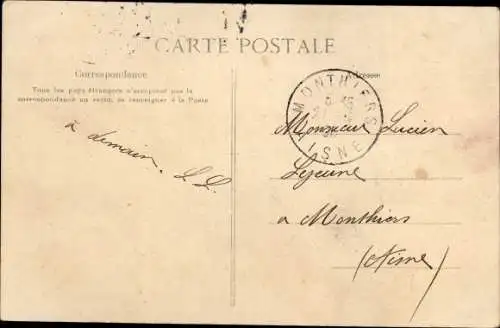 CARTE POSTALE
Correspondance
Adresse
Tous les pays étrangers n'acceptent pas la
correspondance au recto, se renseigner à la Poste
MONTHIERS
AISNE
à demain. L.L.
Monsieur Lucien
Lejeune
à Monthiers
(Aisne)